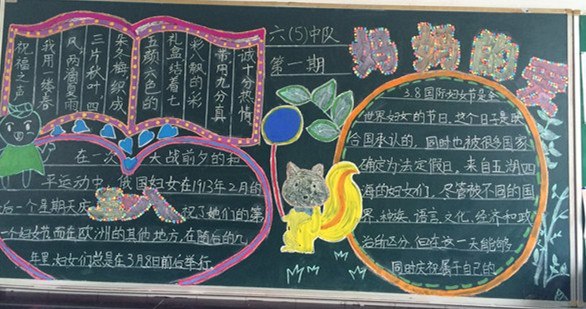 妈妈的
六(5)中队
第一期
祝福之声
我用一缕春
风,两滴夏雨
三片秋叶四
朵冬梅织成
五颜六色的
礼盒结着七
彩飘的彩
带中九分真
诚十分热情
在一次 大战前夕的和
平运动中,俄国妇女在1913年2月的
后一个星期天庆 祝了她们的第
一个妇女节而在欧洲的其他地方,在随后的几
年里,妇女们总是在3月8日前后举行
3.8国际妇女节是全
世界妇女的节日,这个日子是联
合国承认的,同时也被很多国家
确定为法定假日,来自五湖四
海的妇女们,尽管被不同的国
界、种族、语言、文化、经济和政
治所区分,但在这一天能够
同时庆祝属于自己的.